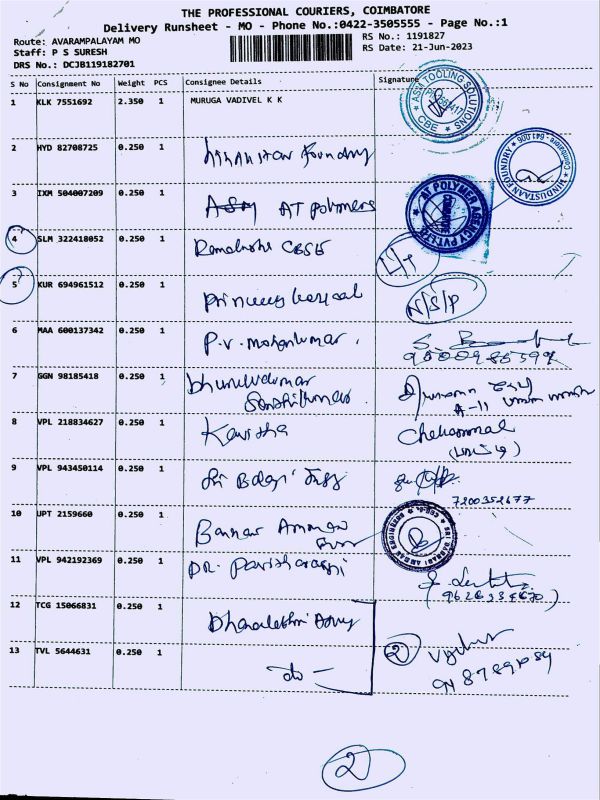 THE PROFESSIONAL COURIERS, COIMBATORE
Delivery Runsheet - MO - Phone No.:0422-3505555 - Page No.:1
Route: AVARAMPALAYAM MO
RS No.: 1191827
Staff: P S SURESH
RS Date: 21-Jun-2023
DRS No.: DCJB119182701
S No Consignment No Weight PCS Consignee Details Signature
1 KLK 7551692 2.350 1 MURUGA VADIVEL K K
ASM TOOLING SOLUTIONS
CBE
2 HYD 82708725 0.250 1 Foundry
HINDUSTAAN FOUNDRY
Coimbatore - 641 006
3 IXM 504007209 0.250 1 AT Polymers
AT POLYMER AGENCY PVT LTD
4 SLM 322418052 0.250 1 CBSE
5 KUR 694961512 0.250 1 N/S/P
6 MAA 600137342 0.250 1 P.V. Mohankumar
7 GGN 98185418 0.250 1
A-11
8 VPL 218834627 0.250 1 Kavitha
9 VPL 943450114 0.250 1 Sri Balaji
7200352677
10 UPT 2159660 0.250 1 Bannari Amman
SRI BANNARI AMMAN ENGINEERS
11 VPL 942192369 0.250 1 DR.
12 TCG 15066831 0.250 1
13 TVL 5644631 0.250 1 do -
2
2